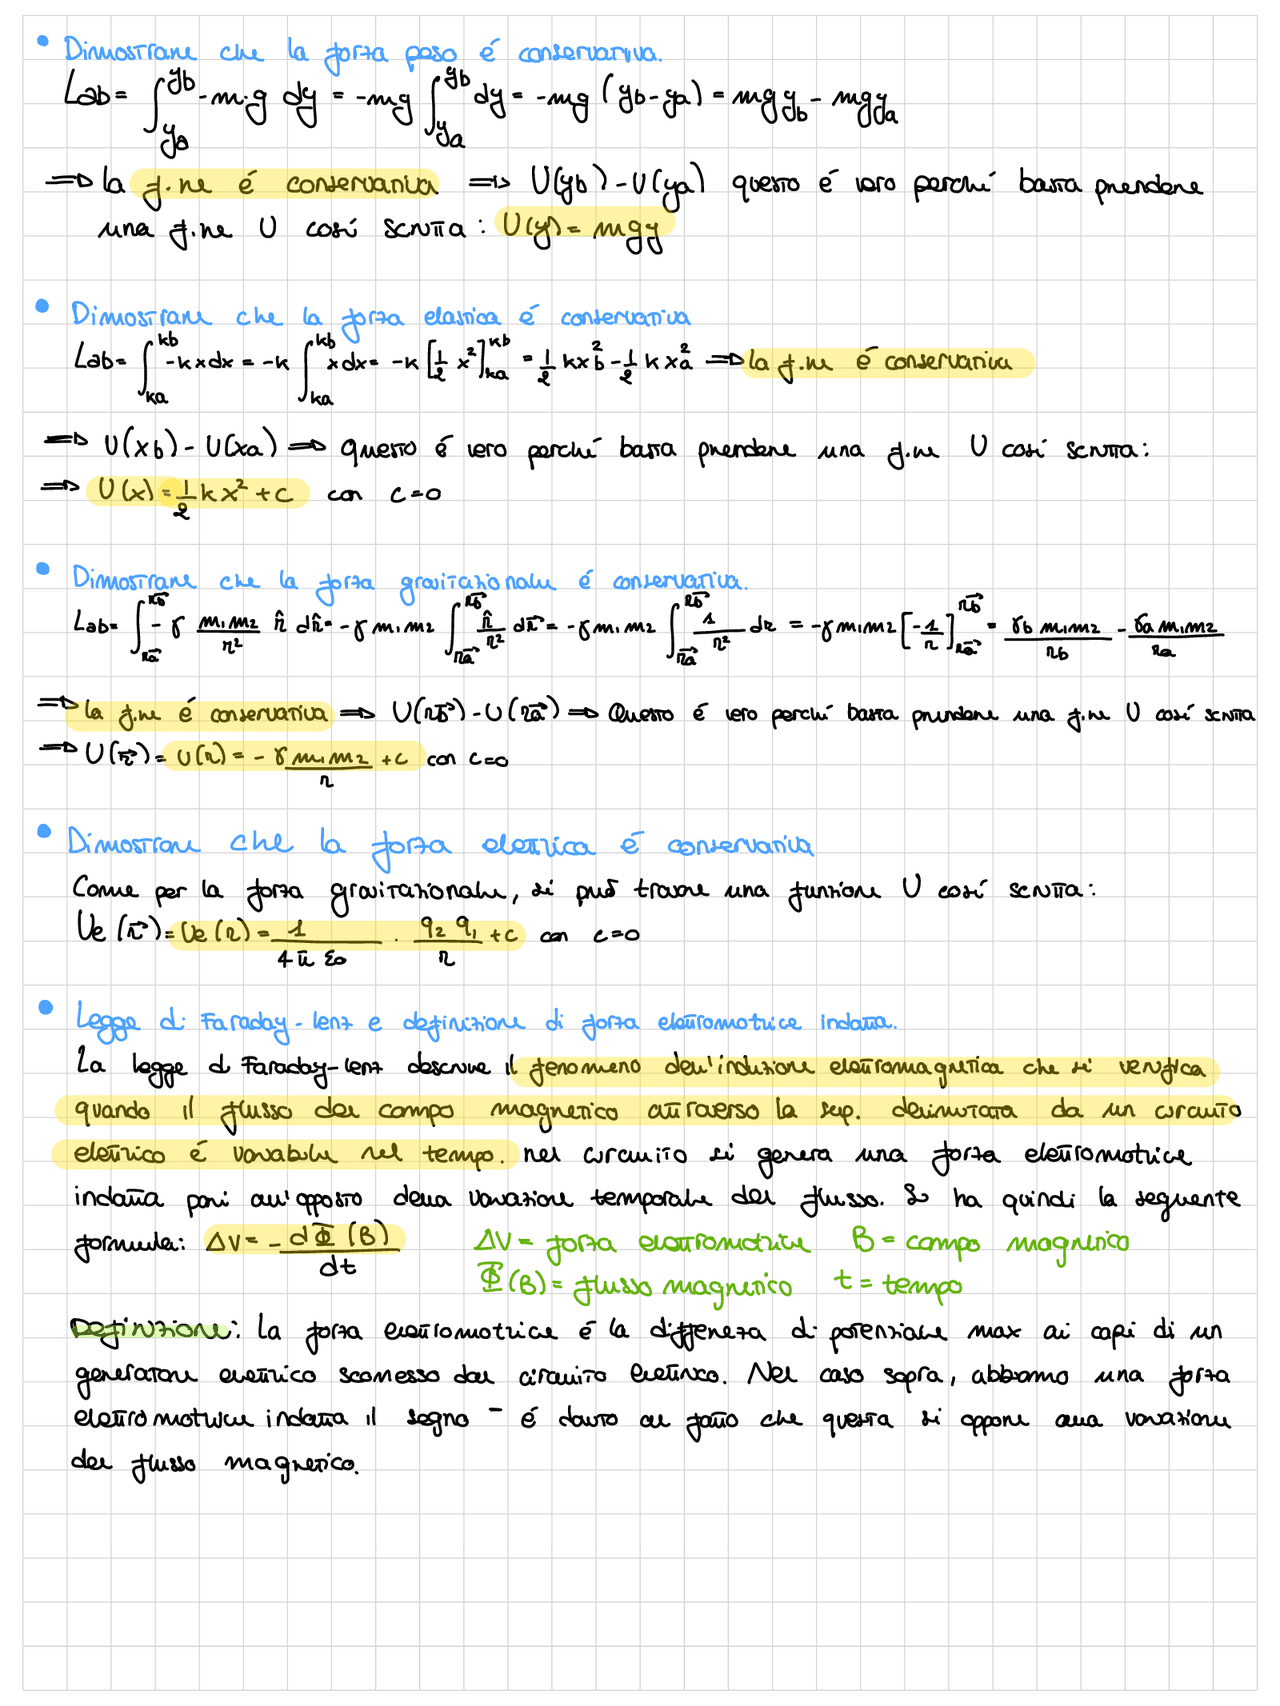 • Dimostrare che la forza peso é conservativa.
Lab = ∫_{ya}^{yb} -m·g dy = -mg ∫_{ya}^{yb} dy = -mg (yb-ya) = mgy_b - mgy_a
⇒ la f.ne é conservativa ⇒ U(yb)-U(ya) questo é vero perché basta prendere
una f.ne U cosí scritta: U(y)= mgy
• Dimostrare che la forza elastica é conservativa
Lab= ∫_{ka}^{kb} -kxdx = -k ∫_{ka}^{kb} xdx= -k [1/2 x²]_{ka}^{kb} = 1/2 kx_b² - 1/2 kx_a² ⇒ la f.ne é conservativa
⇒ U(xb)-U(xa) ⇒ questo é vero perché basta prendere una f.ne U cosí scritta:
⇒ U(x)= 1/2 kx² + c con c=0
• Dimostrare che la forza gravitazionale é conservativa.
Lab= ∫_{r⃗a}^{r⃗b} -γ m₁m₂/r² r̂ dr̂= -γ m₁m₂ ∫_{r⃗a}^{r⃗b} r̂/r² dr⃗= -γ m₁m₂ ∫_{r⃗a}^{r⃗b} 1/r² dr = -γ m₁m₂ [-1/r]_{r⃗a}^{r⃗b} = γb m₁m₂/rb - γa m₁m₂/ra
⇒ la f.ne é conservativa ⇒ U(r⃗b)-U(r⃗a) ⇒ Questo é vero perché basta prendere una f.ne U cosí scritta
⇒ U(r⃗)= U(r)= -γ m₁m₂/r + c con c=0
• Dimostrare che la forza elettrica é conservativa
Come per la forza gravitazionale, si puó trovare una funzione U cosí scritta:
Ue(r⃗)= Ue(r)= 1/4π ε₀ · q₂ q₁/r + c con c=0
• Legge di Faraday-lenz e definizione di forza elettromotrice indotta.
La legge di Faraday-lenz descrive il fenomeno dell'induzione elettromagnetica che si verifica
quando il flusso del campo magnetico attraverso la sup. delimitata da un circuito
elettrico é variabile nel tempo. nel circuito si genera una forza elettromotrice
indotta pari all'opposto della variazione temporale del flusso. Si ha quindi la seguente
formula: ΔV= -dΦ(B)/dt ΔV= forza elettromotrice B= campo magnetico
Φ(B)= flusso magnetico t= tempo
Definizione: La forza elettromotrice é la differenza di potenziale max ai capi di un
generatore elettrico scomesso dal circuito elettrico. Nel caso sopra, abbiamo una forza
elettromotrice indotta il segno - é dovuto al fatto che questa si oppone alla variazione
del flusso magnetico.